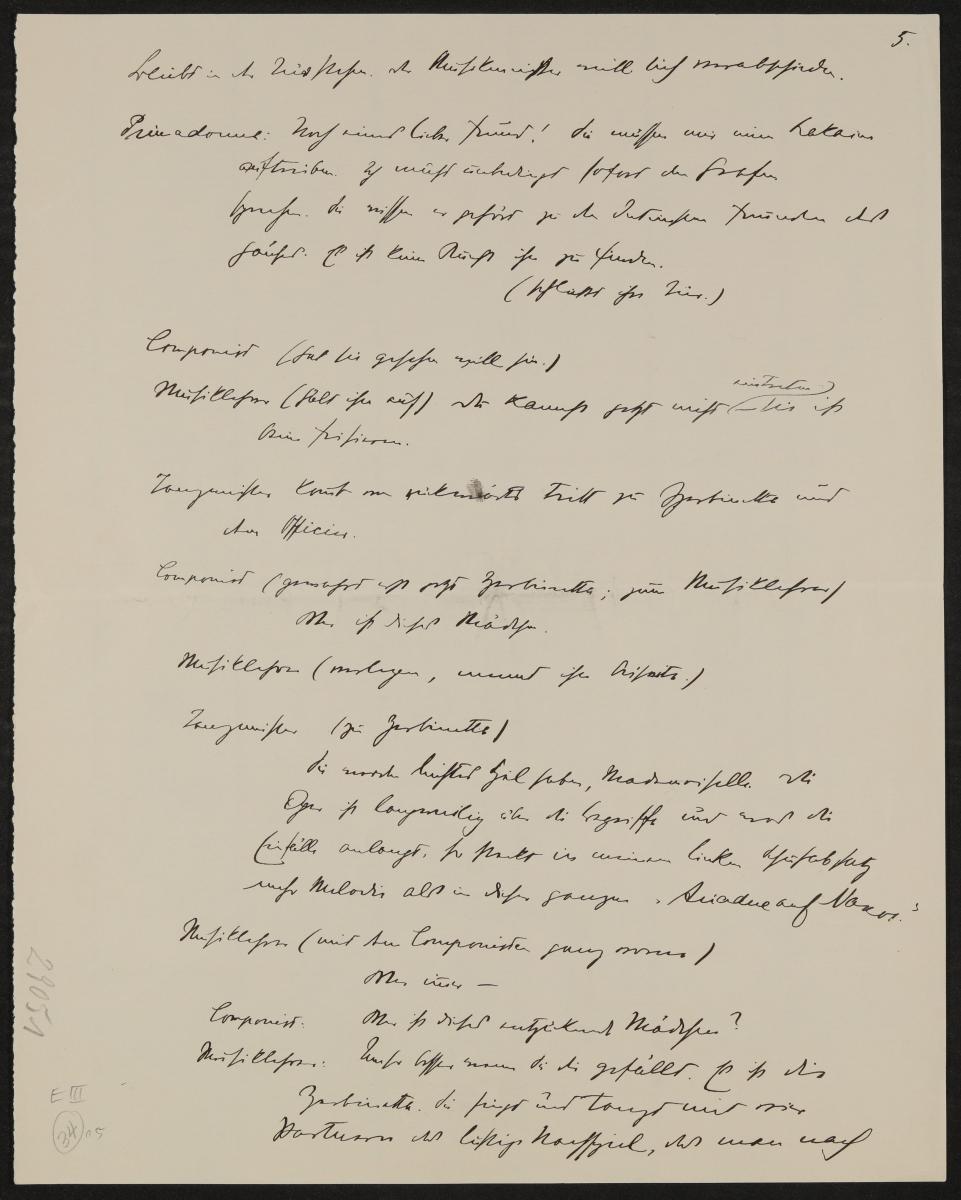 5.
bleibt in der Thür stehen. der Musikmeister will sich verabschieden.
Primadonna: Noch eines lieber Freund! Sie müssen mir einen Lakaien
auftreiben. Ich muß unbedingt sofort den Grafen
sprechen. Sie wissen er gehört zu den Intimsten Freunden des
Hauses. Es ist kein Mensch hier zu finden.
(schließt ihre Thür.)
Componist (hat sie gesehen will hin.)
Musiklehrer (hält ihn auf) du kannst jetzt nicht eintreten – sie ist
beim frisieren.
Tanzmeister kommt von rückwärts tritt zu Zerbinetta und
den Officier.
Componist (gewahrt erst jetzt Zerbinetta; zum Musiklehrer)
Wer ist dieses Mädchen.
Musiklehrer (verlegen, nimmt ihn beiseite.)
Tanzmeister (zu Zerbinetta)
Sie werden leichtes Spiel haben, Mademoiselle. Die
Oper ist langweilig über die Begriffe und was die
Einfälle anlangt, so steckt in meinem linken Schuhabsatz
mehr Melodie als in dieser ganzen „Ariadne auf Naxos."
Musiklehrer (mit dem Componisten ganz vorne)
Wer immer –
Componist: Wer ist dieses entzückende Mädchen?
Musiklehrer: Umso besser wenn sie dir gefällt. Es ist die
Zerbinetta. Sie singt und tanzt mit vier
Partnern das lustige Nachspiel, das man nach
29051
E III
34 15